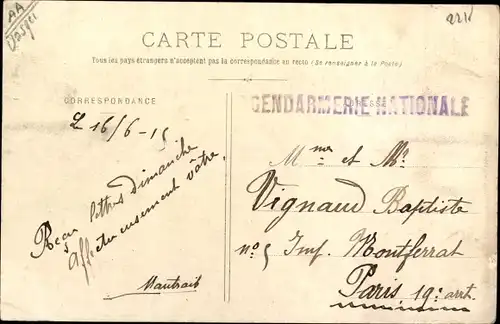 AA
Vosges
2215
CARTE POSTALE
Tous les pays étrangers n'acceptent pas la correspondance au recto (Se renseigner à la Poste)
CORRESPONDANCE
ADRESSE
GENDARMERIE NATIONALE
L 16/6-15
Reçu lettres dimanche
affectueusement vôtre,
Mautrait
Mme et Mr
Vignaud Baptiste
n° 5 Imp. Montferrat
Paris 19e arrt.